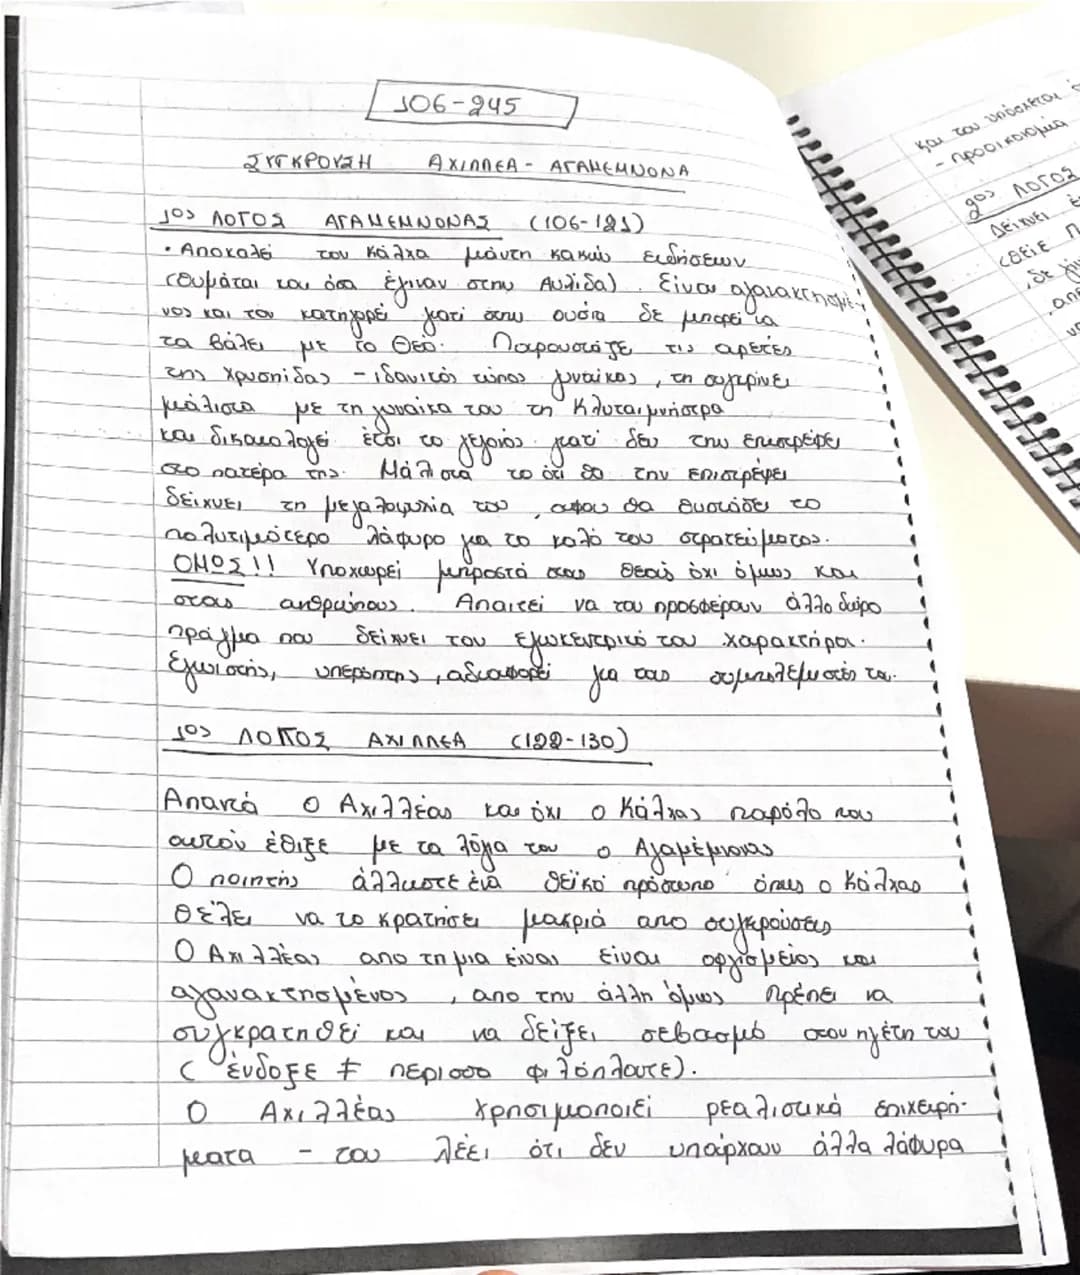 106-245
ΣΥΓΚΡΟΥΣΗ ΑΧΙΛΛΕΑ - ΑΓΑΜΕΜΝΟΝΑ
1ος ΛΟΓΟΣ ΑΓΑΜΕΜΝΟΝΑΣ (106-121)
• Αποκαλεί τον Κάλχα μάντη κακών ειδήσεων
(θυμάται και όσα έγιναν στην Αυλίδα). Είναι αγανακτησμέ-
νος και τον κατηγορεί γιατί στην ουσία δε μπορεί να
τα βάλει με το Θεό. Παρουσιάζε τις αρετές
της Χρυσηίδας - ιδανικός τύπος γυναίκας, τη συγκρίνει
μάλιστα με τη γυναίκα του τη Κλυταιμνήστρα
και δικαιολογεί έτσι το γεγονός γιατί δεν την επιστρέφει
στο πατέρα της. Μάλιστα το ότι θα την επιστρέψει
δείχνει τη μεγαλοψυχία του, αφου θα θυσιάσει το
πολυτιμότερο λάφυρο για το καλό του στρατεύματος.
ΟΜΩΣ!! Υποχωρεί μπροστά στους θεούς όχι όμως και
στους ανθρώπους. Απαιτεί να του προσφέρουν άλλο δώρο
πράγμα που δείχνει τον εγωκεντρικό του χαρακτήρα.
Εγωιστής, υπερόπτης, αδιαφορεί για τους συμπολεμιστές του.
1ος ΛΟΓΟΣ ΑΧΙΛΛΕΑ (122-130)
Απαντά ο Αχιλλέας και όχι ο Κάλχας παρόλο που
αυτόν έθιξε με τα λόγια του ο Αγαμέμνονας
Ο ποιητής άλλωστε ένα θεϊκό πρόσωπο όπως ο Κάλχας
θέλει να το κρατήσει μακριά απο συγκρούσεις
Ο Αχιλλέας απο τη μια είναι είναι οργισμένος και
αγανακτησμένος, απο την άλλη όμως πρέπει να
συγκρατηθεί και να δείξει σεβασμό στον ηγέτη του
(ένδοξε ≠ περισσα φιλόπλουτε).
Ο Αχιλλέας χρησιμοποιεί ρεαλιστικά επιχειρή-
ματα - του λέει ότι δεν υπάρχουν άλλα λάφυρα
και του υπόσχεται
- προοικονομία
2ος ΛΟΓΟΣ
Δείχνει